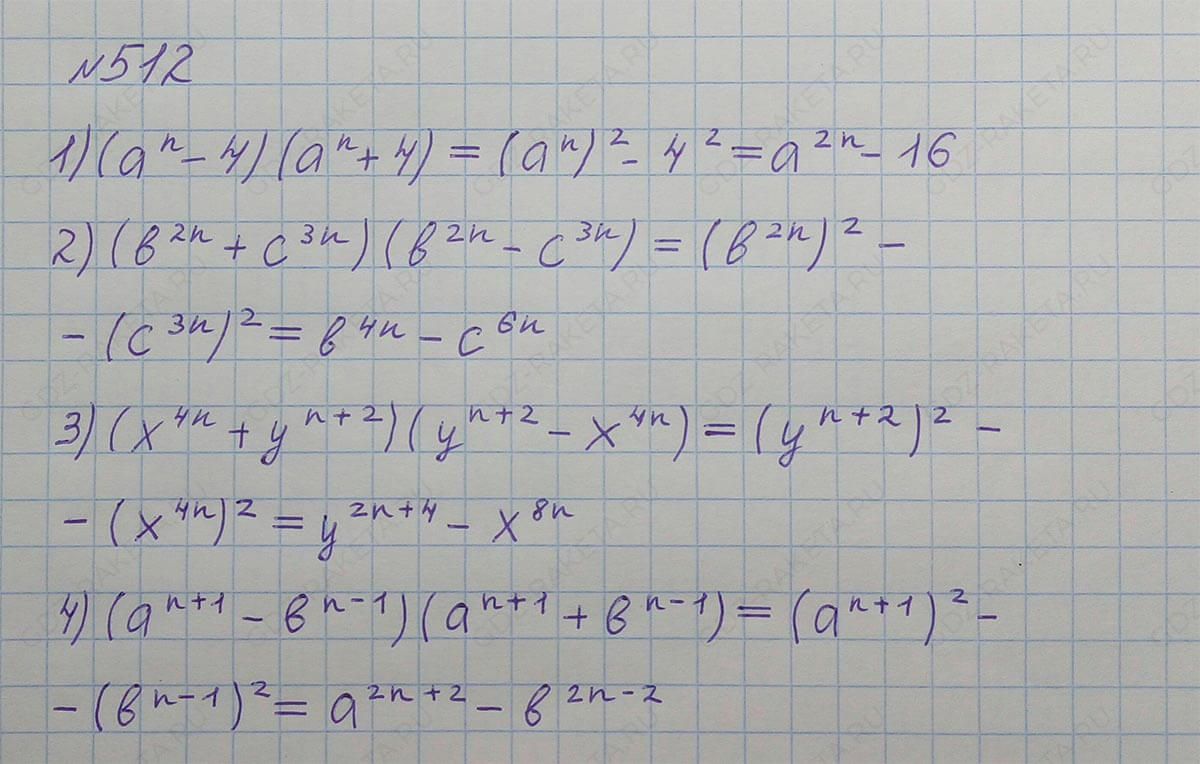 №512
1) (aⁿ - 4)(aⁿ + 4) = (aⁿ)² - 4² = a²ⁿ - 16
2) (b²ⁿ + c³ⁿ)(b²ⁿ - c³ⁿ) = (b²ⁿ)² -
- (c³ⁿ)² = b⁴ⁿ - c⁶ⁿ
3) (x⁴ⁿ + yⁿ⁺²)(yⁿ⁺² - x⁴ⁿ) = (yⁿ⁺²)² -
- (x⁴ⁿ)² = y²ⁿ⁺⁴ - x⁸ⁿ
4) (aⁿ⁺¹ - bⁿ⁻¹)(aⁿ⁺¹ + bⁿ⁻¹) = (aⁿ⁺¹)² -
- (bⁿ⁻¹)² = a²ⁿ⁺² - b²ⁿ⁻²
GDZ-RAKETA.RU